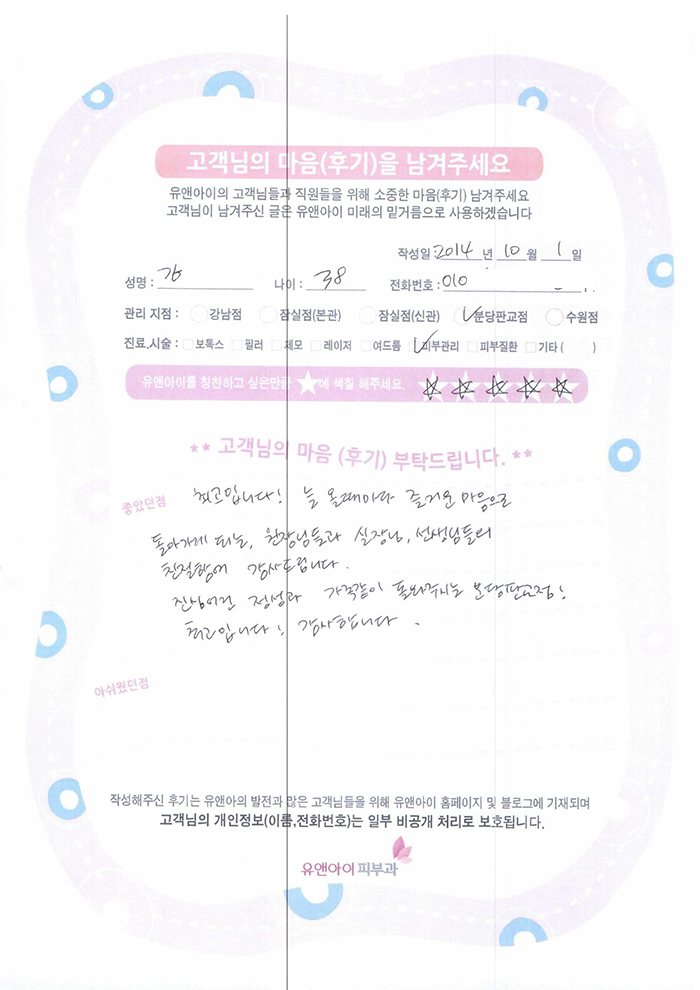 고객님의 마음(후기)을 남겨주세요
유앤아이의 고객님들과 직원들을 위해 소중한 마음(후기) 남겨주세요
고객님이 남겨주신 글은 유앤아이 미래의 밑거름으로 사용하겠습니다
작성일: 2014 년 10 월 1 일
성명 : 강 나이 : 38 전화번호 : 010
관리 지점 : 강남점 잠실점(본관) 잠실점(신관) 분당판교점 수원점
진료.시술 : 보톡스 필러 제모 레이저 여드름 피부관리 피부질환 기타 ( )
유앤아이를 칭찬하고 싶은만큼 ★에 색칠 해주세요
** 고객님의 마음 (후기) 부탁드립니다. **
좋았던점 최고입니다! 늘 올때마다 즐거운 마음으로
돌아가게 되는, 원장님들과 실장님, 선생님들의
친절함에 감사드립니다.
진심어린 정성과 가족같이 돌봐주시는 분당판교점!
최고입니다! 감사합니다.
아쉬웠던점
작성해주신 후기는 유앤아의 발전과 많은 고객님들을 위해 유앤아이 홈페이지 및 블로그에 기재되며
고객님의 개인정보(이름,전화번호)는 일부 비공개 처리로 보호됩니다.
유앤아이피부과